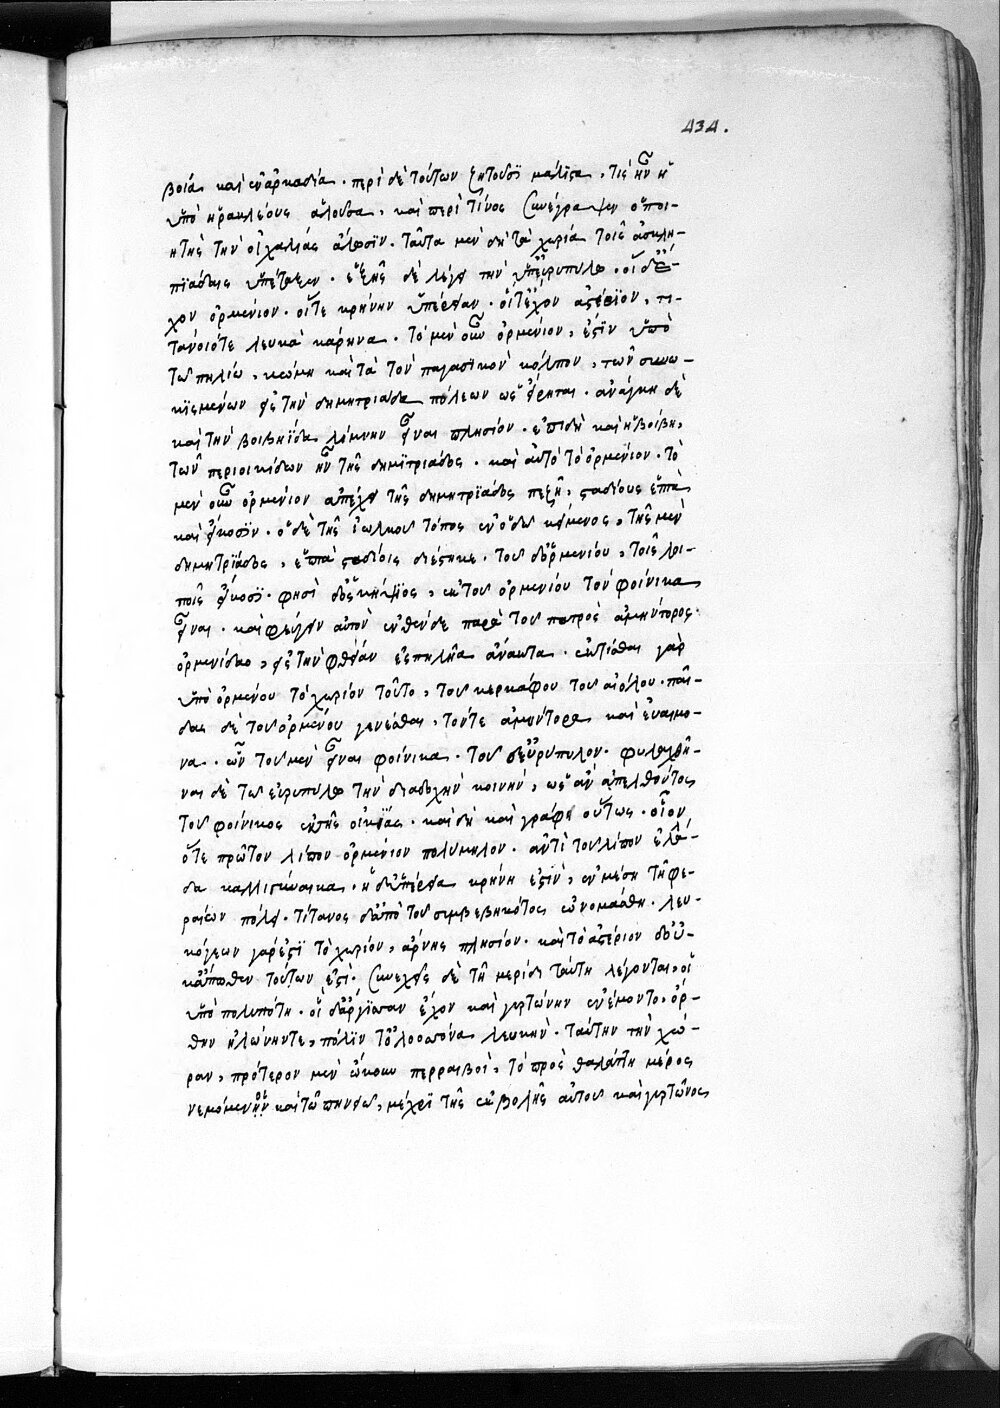 434.
βοία καὶ ἐν ἀρκαδία. περὶ δὲ τούτων ζητοῦσι μάλιστα, τίς ἦν ἡ
ὑπὸ ἡρακλέους ἁλοῦσα, καὶ περὶ τίνος συνέγραψεν ὁ ποι-
ητὴς τὴν οἰχαλίας ἅλωσιν. ταῦτα μὲν δὴ τὰ χωρία τοῖς ἀσκλη-
πιάδαις ὑπέταξεν. ἑξῆς δὲ λέγει τὴν ὑπ' εὐρυπύλῳ. οἳ δ' ἔ-
χον ὀρμένιον. οἵτε κρήνην ὑπέρειαν. οἵτ' ἔχον ἀστέριον, τι-
τάνοιό τε λευκὰ κάρηνα. τὸ μὲν οὖν ὀρμένιον, ἐστὶν ὑπὸ
τῷ πηλίῳ, κώμη κατὰ τὸν παγασικὸν κόλπον, τῶν συνω-
κισμένων εἰς τὴν δημητριάδα πόλεων ὡς εἴρηται. ἀνάγκη δὲ
καὶ τὴν βοιβηΐδα λίμνην εἶναι πλησίον. ἐπειδὴ καὶ ἡ βοίβη,
τῶν περιοικίδων ἦν τῆς δημητριάδος. καὶ αὐτὸ τὸ ὀρμένιον. τὸ
μὲν οὖν ὀρμένιον ἀπέχει τῆς δημητριάδος πεζῇ, σταδίους ἑπτὰ
καὶ εἴκοσιν. ὁ δὲ τῆς ἰωλκοῦ τόπος ἐν ὁδῷ κείμενος, τῆς μὲν
δημητριάδος, ἑπτὰ σταδίοις διέστηκε. τοῦ δ' ὀρμενίου, τοῖς λοι-
ποῖς εἴκοσι. φησὶ δ' ὁ σκήψιος, ἐκ τοῦ ὀρμενίου τὸν φοίνικα
εἶναι. καὶ φεύγειν αὐτὸν ἐνθένδε παρὰ τοῦ πατρὸς ἀμύντορος
ὀρμενίδαο, εἰς τὴν φθίαν ἐς πηλῆα ἄνακτα. ἐκτίσθαι γὰρ
ὑπὸ ὀρμένου τὸ χωρίον τοῦτο, τοῦ κερκάφου τοῦ αἰόλου. παῖ-
δας δὲ τοῦ ὀρμένου γενέσθαι, τόν τε ἀμύντορα καὶ εὐαίμο-
να. ὧν τοῦ μὲν εἶναι φοίνικα. τοῦ δ' εὐρύπυλον. φυλαχθῆ-
ναι δὲ τῷ εὐρυπύλῳ τὴν διαδοχὴν κοινήν, ὡς ἂν ἀπελθόντος
τοῦ φοίνικος ἐκ τῆς οἰκείας. καὶ δὴ καὶ γράφει οὕτως. οἷον
ὅτε πρῶτον λίπον ὀρμένιον πολύμηλον. ἀντὶ τοῦ λίπον ἑλλά-
δα καλλιγύναικα. ἡ δ' ὑπέρεια κρήνη ἐστὶν, ἐν μέσῃ τῇ φε-
ραίων πόλει. τίτανος δ' ἀπὸ τοῦ συμβεβηκότος ὠνομάσθη. λευ-
κόγεων γάρ ἐστι τὸ χωρίον, ἄρνης πλησίον. καὶ τὸ ἀστέριον δ' οὐ-
κ ἄπωθεν τούτων ἐστί. συνεχεῖς δὲ τῇ μερίδι ταύτῃ λέγονται, οἱ
ὑπὸ πολυποίτῃ. οἳ δ' ἄργισσαν ἔχον καὶ γυρτώνην ἐνέμοντο. ὄρ-
θην ἠλώνην τε, πόλιν τ' ὀλοοσσόνα λευκήν. ταύτην τὴν χώ-
ραν, πρότερον μὲν ᾤκουν περραιβοί, τὸ πρὸς θαλάττῃ μέρος
νεμόμενοι καὶ τῷ πηνειῷ, μέχρι τῆς ἐκβολῆς αὐτοῦ καὶ γυρτῶνος